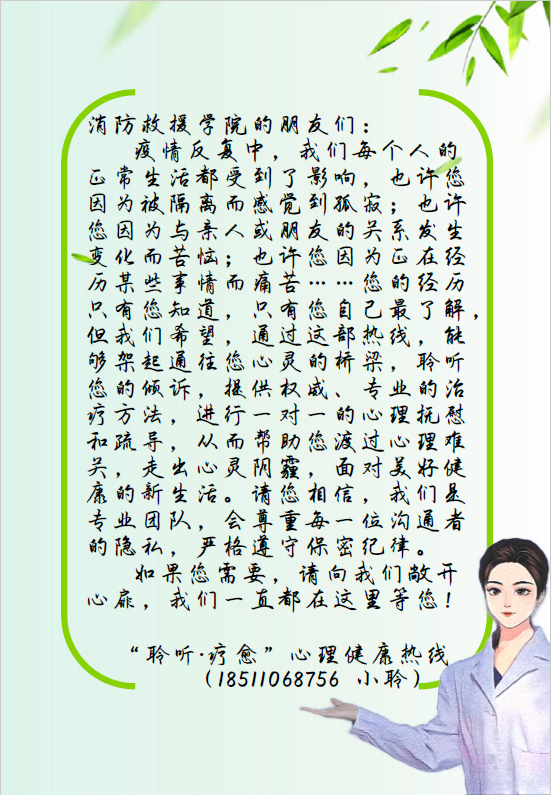 消防救援学院的朋友们：
疫情反复中，我们每个人的
正常生活都受到了影响，也许您
因为被隔离而感觉到孤寂；也许
您因为与亲人或朋友的关系发生
变化而苦恼；也许您因为正在经
历某些事情而痛苦……您的经历
只有您知道，只有您自己最了解，
但我们希望，通过这部热线，能
够架起通往您心灵的桥梁，聆听
您的倾诉，提供权威、专业的治
疗方法，进行一对一的心理抚慰
和疏导，从而帮助您渡过心理难
关，走出心灵阴霾，面对美好健
康的新生活。请您相信，我们是
专业团队，会尊重每一位沟通者
的隐私，严格遵守保密纪律。
如果您需要，请向我们敞开
心扉，我们一直都在这里等您！
“聆听·疗愈”心理健康热线
（18511068756 小聆）